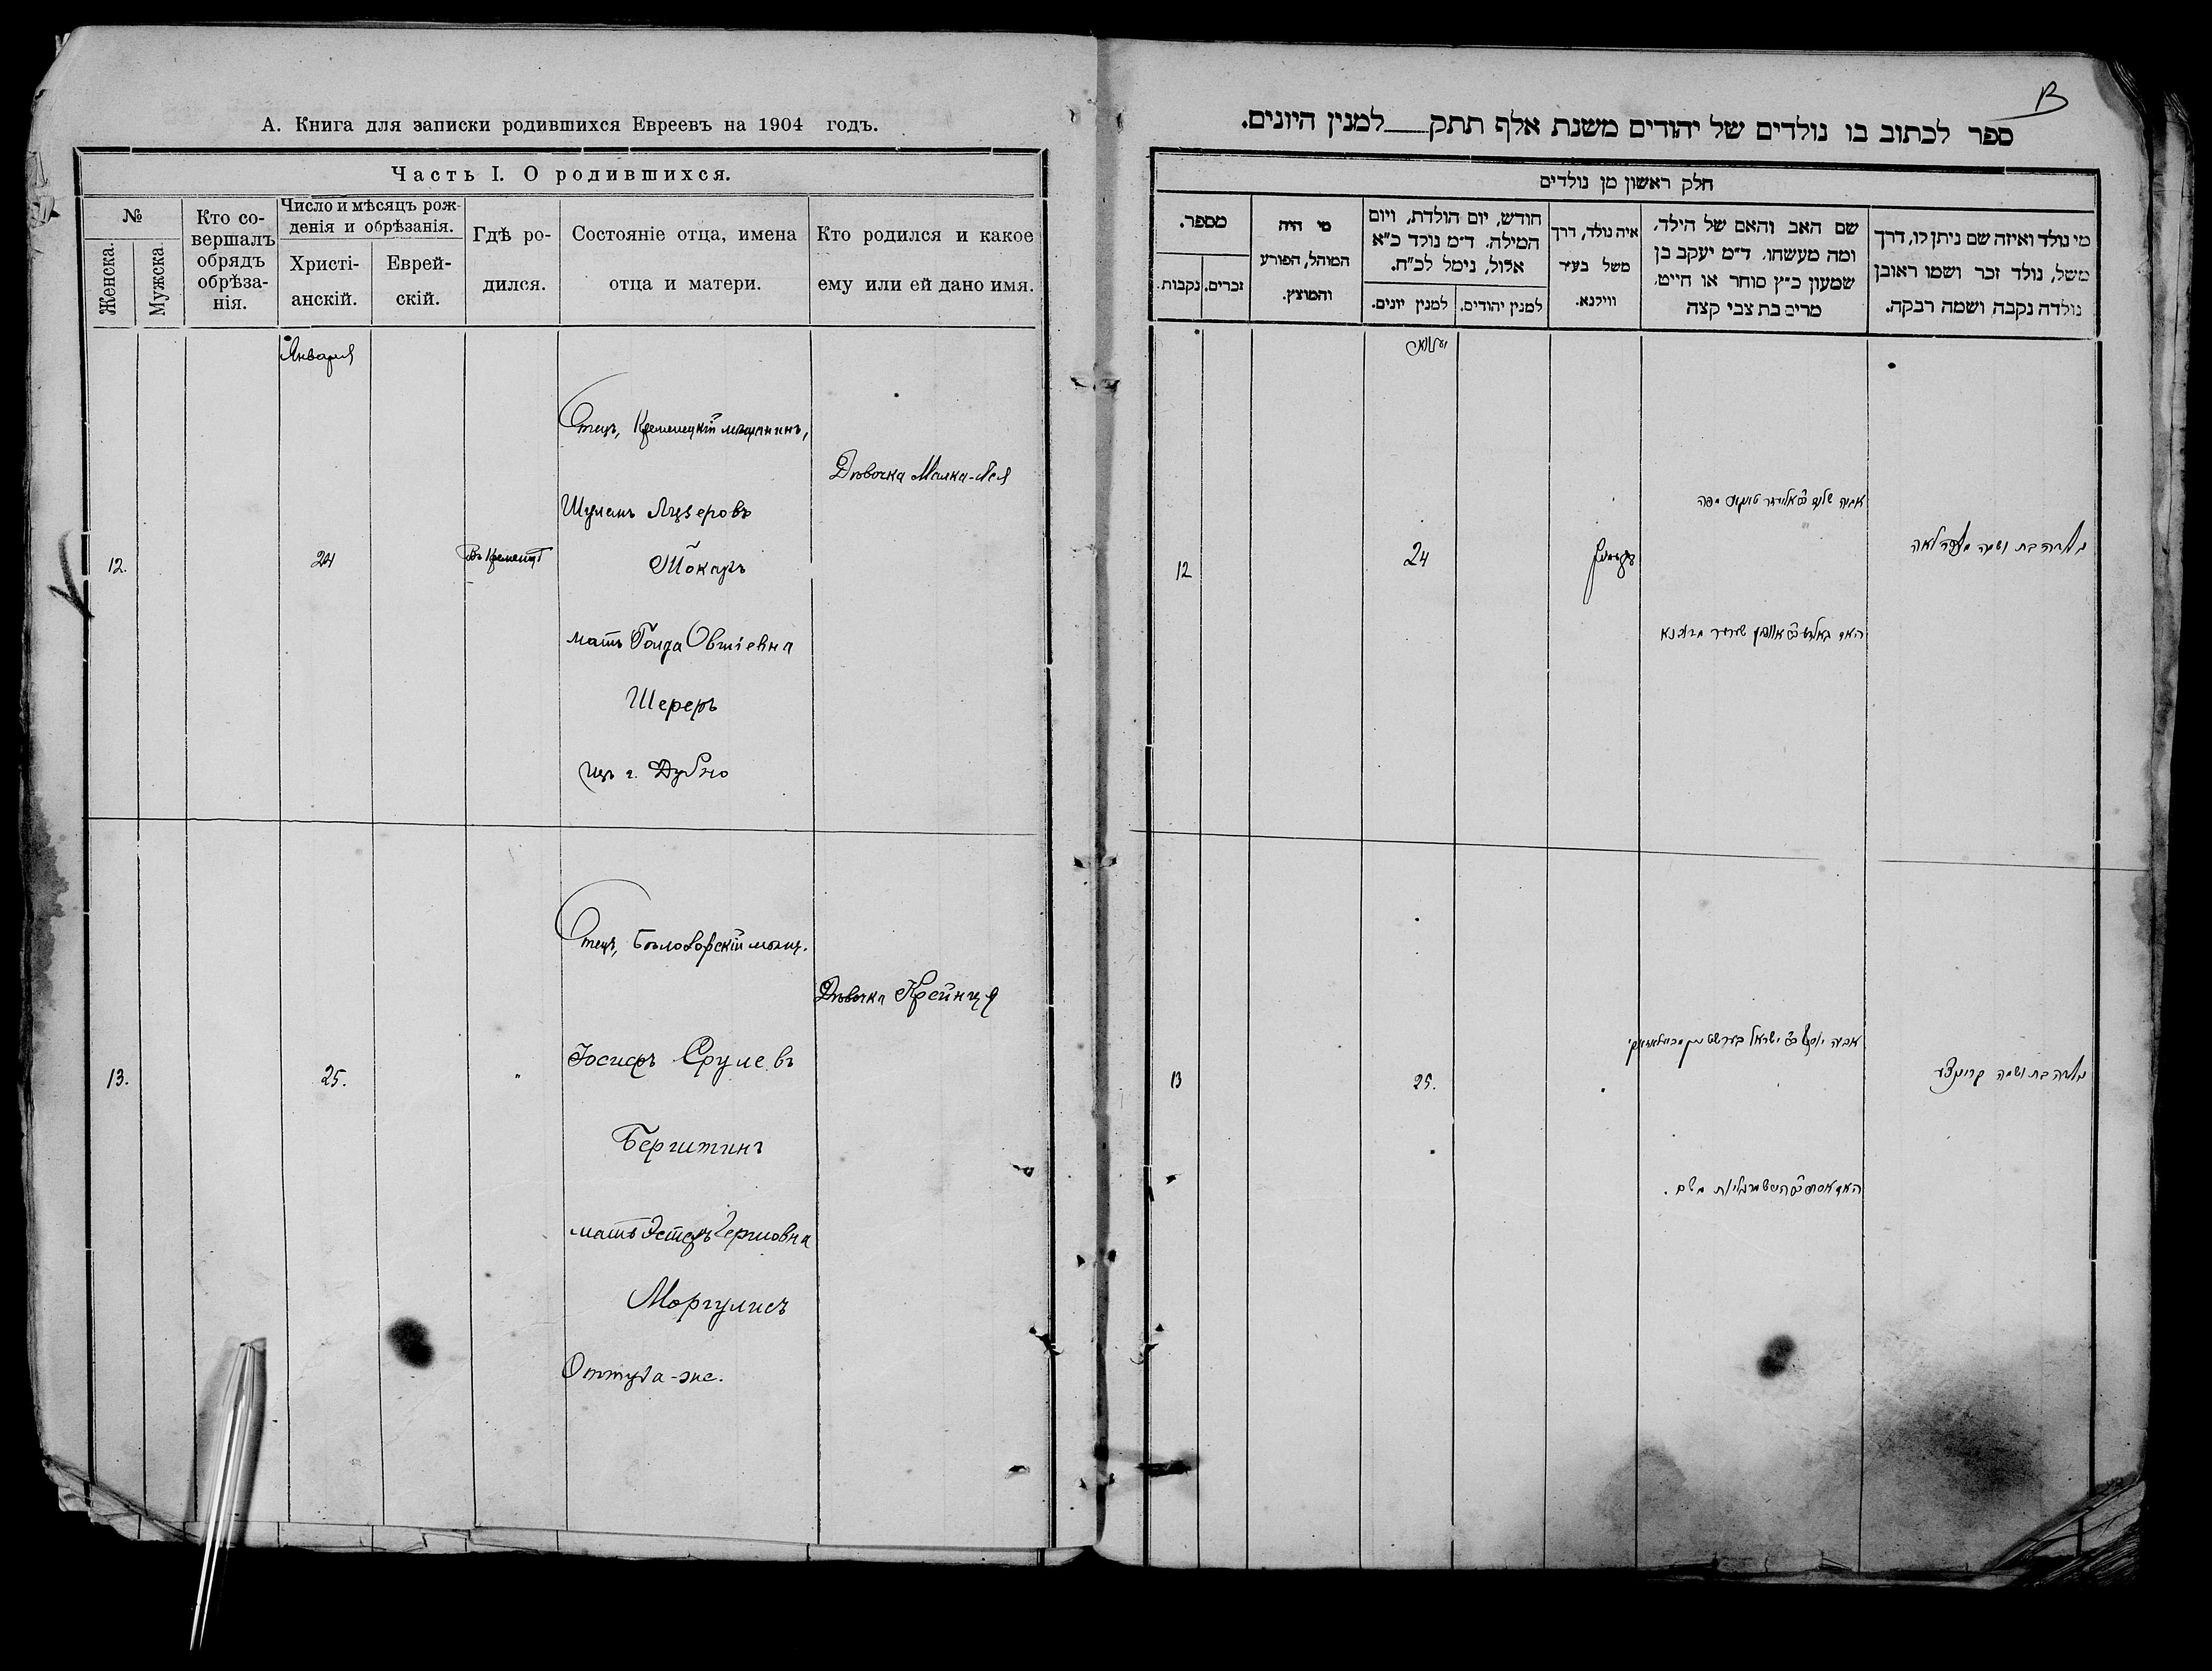 А. Книга для записки родившихся Евреевъ на 1904 годъ.
Часть I. О родившихся.
№
Женска.
Мужска
Кто со-
вершалъ
обрядъ
обрѣза-
нія.
Число и мѣсяцъ рож-
денія и обрѣзанія.
Христі-
анскій.
Еврей-
скій.
Гдѣ ро-
дился.
Состояніе отца, имена
отца и матери.
Кто родился и какое
ему или ей дано имя.
Января
12.
24
Въ Кременцѣ
Отецъ, Кременецкій мѣщанинъ,
Шулимъ Лузеровъ
Токаръ
мать Голда Овшіевна
Шереръ
изъ г. Дубно
Дѣвочка Малка-Лея
13.
25.
"
Отецъ, мѣщ.
Іосифъ Срулевъ
Берштинъ
мать Эстеръ Гершовна
Моргулисъ
Оттуда-же.
Дѣвочка Крейнця
13
ספר לכתוב בו נולדים של יהודים משנת אלף תתק למנין היונים.
חלק ראשון מן נולדים
מספר.
זכרים.
נקבות.
מי היה
המוהל, הפורע
והמוצץ.
חודש, יום הולדת, ויום
המילה. ד״מ נולד כ״א
אלול, נימל לכ״ח.
למנין יהודים.
למנין יונים.
איה נולד, דרך
משל בעיר
ווילנא.
שם האב והאם של הילד,
ומה מעשהו. ד״מ יעקב בן
שמעון כ״ץ סוחר או חייט,
מרים בת צבי קצה
מי נולד ואיזה שם ניתן לו, דרך
משל, נולד זכר ושמו ראובן
נולדה נקבה ושמה רבקה.
12
24
אביה שלום אליעזר טוקער מפה
האם שערער מדובנא
נולדה בת ושמה מלכה לאה
13
25.
אביה יוסף ישראל
האם אסתר מרגליות משם.
נולדה בת ושמה קריינצע